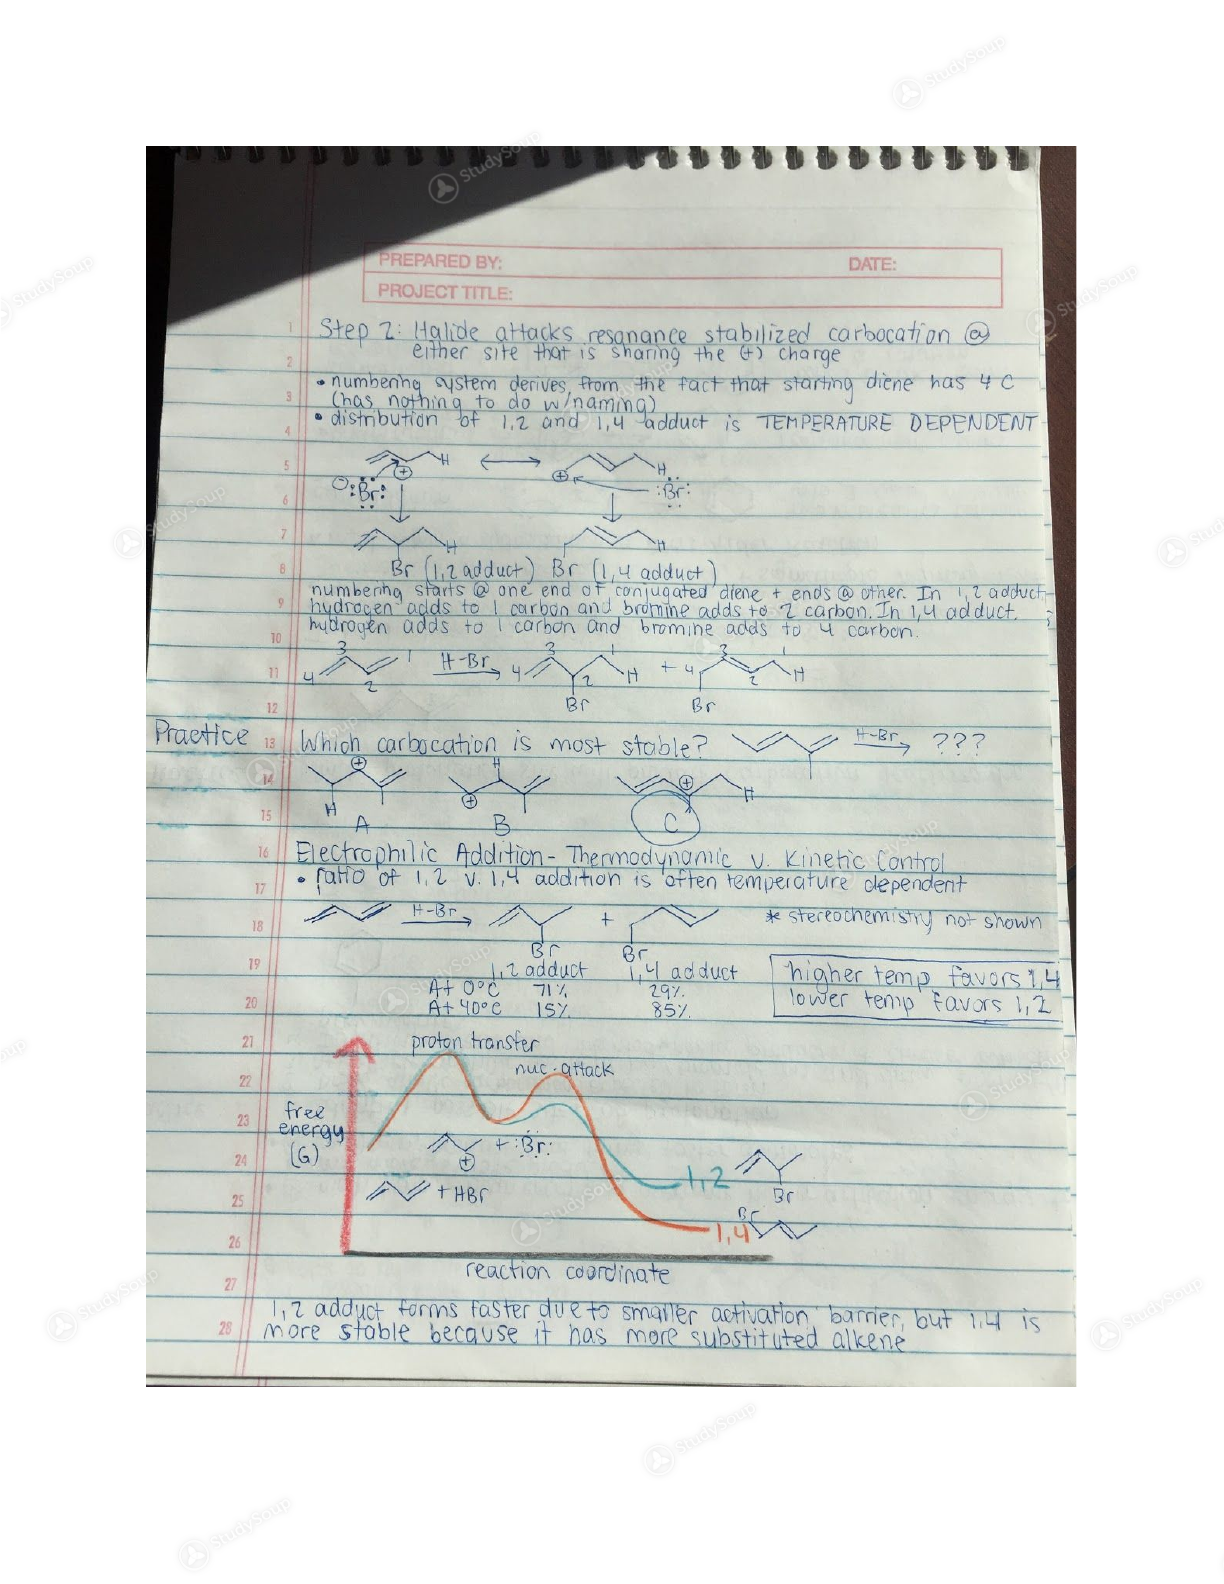 PREPARED BY: DATE:
PROJECT TITLE:
1 Step 2: Halide attacks resonance stabilized carbocation @
2 either site that is sharing the (+) charge
• numbering system derives from the fact that starting diene has 4 C
3 (has nothing to do w/naming)
4 • distribution of 1,2 and 1,4 adduct is TEMPERATURE DEPENDENT
5 H H
6 :Br: :Br:
7 H H
8 Br (1,2 adduct) Br (1,4 adduct)
numbering starts @ one end of conjugated diene + ends @ other. In 1,2 adduct,
9 hydrogen adds to 1 carbon and bromine adds to 2 carbon. In 1,4 adduct,
10 hydrogen adds to 1 carbon and bromine adds to 4 carbon.
3 1 H-Br 3 1 + 3 1
11 4 2 4 2 H 4 2 H
12 Br Br
Practice 13 Which carbocation is most stable? H-Br ???
14 H H
15 H A B C
16 Electrophilic Addition - Thermodynamic v. Kinetic Control
17 • ratio of 1,2 v. 1,4 addition is often temperature dependent
18 H-Br + * stereochemistry not shown
Br Br
19 1,2 adduct 1,4 adduct higher temp favors 1,4
At 0°C 71% 29% lower temp favors 1,2
20 At 40°C 15% 85%
21 proton transfer
22 nuc. attack
23 free
energy
24 (G) + :Br:
1,2 Br
25 + HBr
Br
26 1,4
27 reaction coordinate
1,2 adduct forms faster due to smaller activation barrier, but 1,4 is
28 more stable because it has more substituted alkene
StudySoup